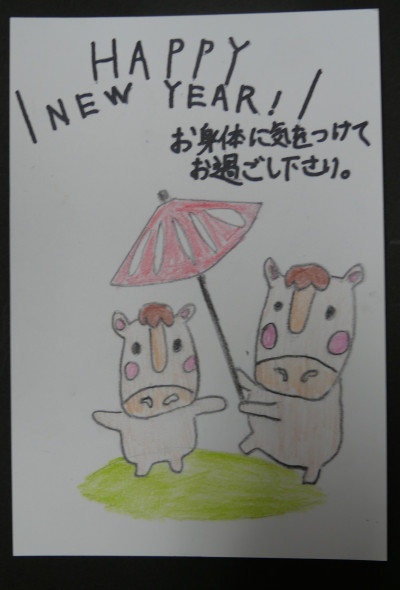 HAPPY
\NEW YEAR!/
お身体に気をつけて
お過ごし下さい。